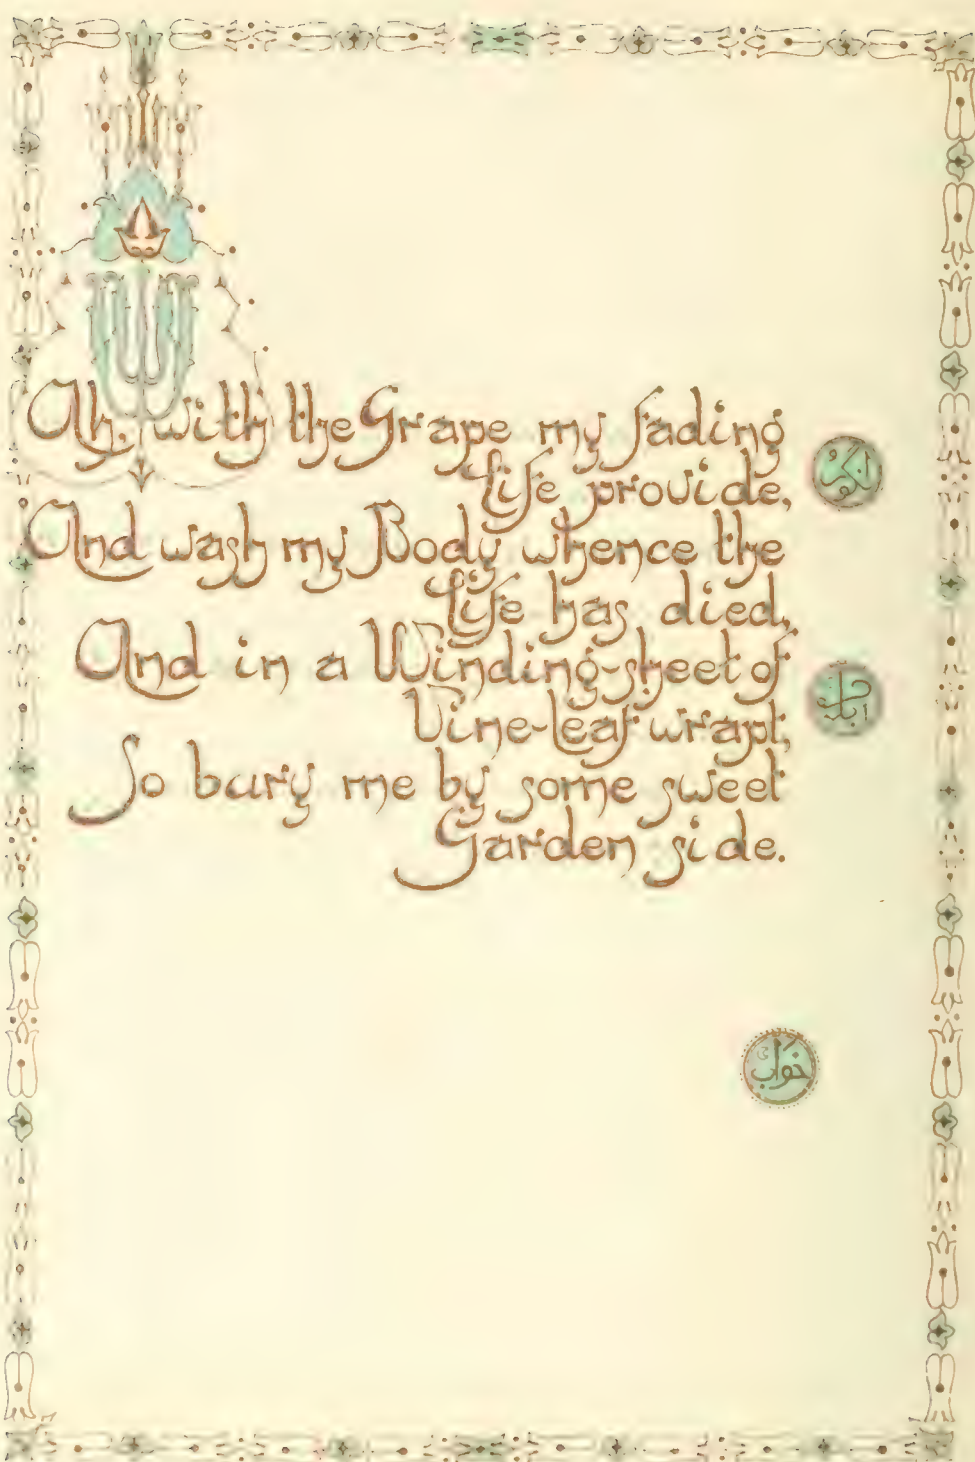 Ah, with the Grape my fading
Life provide,
And wash my Body whence the
Life has died,
And in a Winding-sheet of
Vine-leaf wrapt,
So bury me by some sweet
Garden side.
خواب